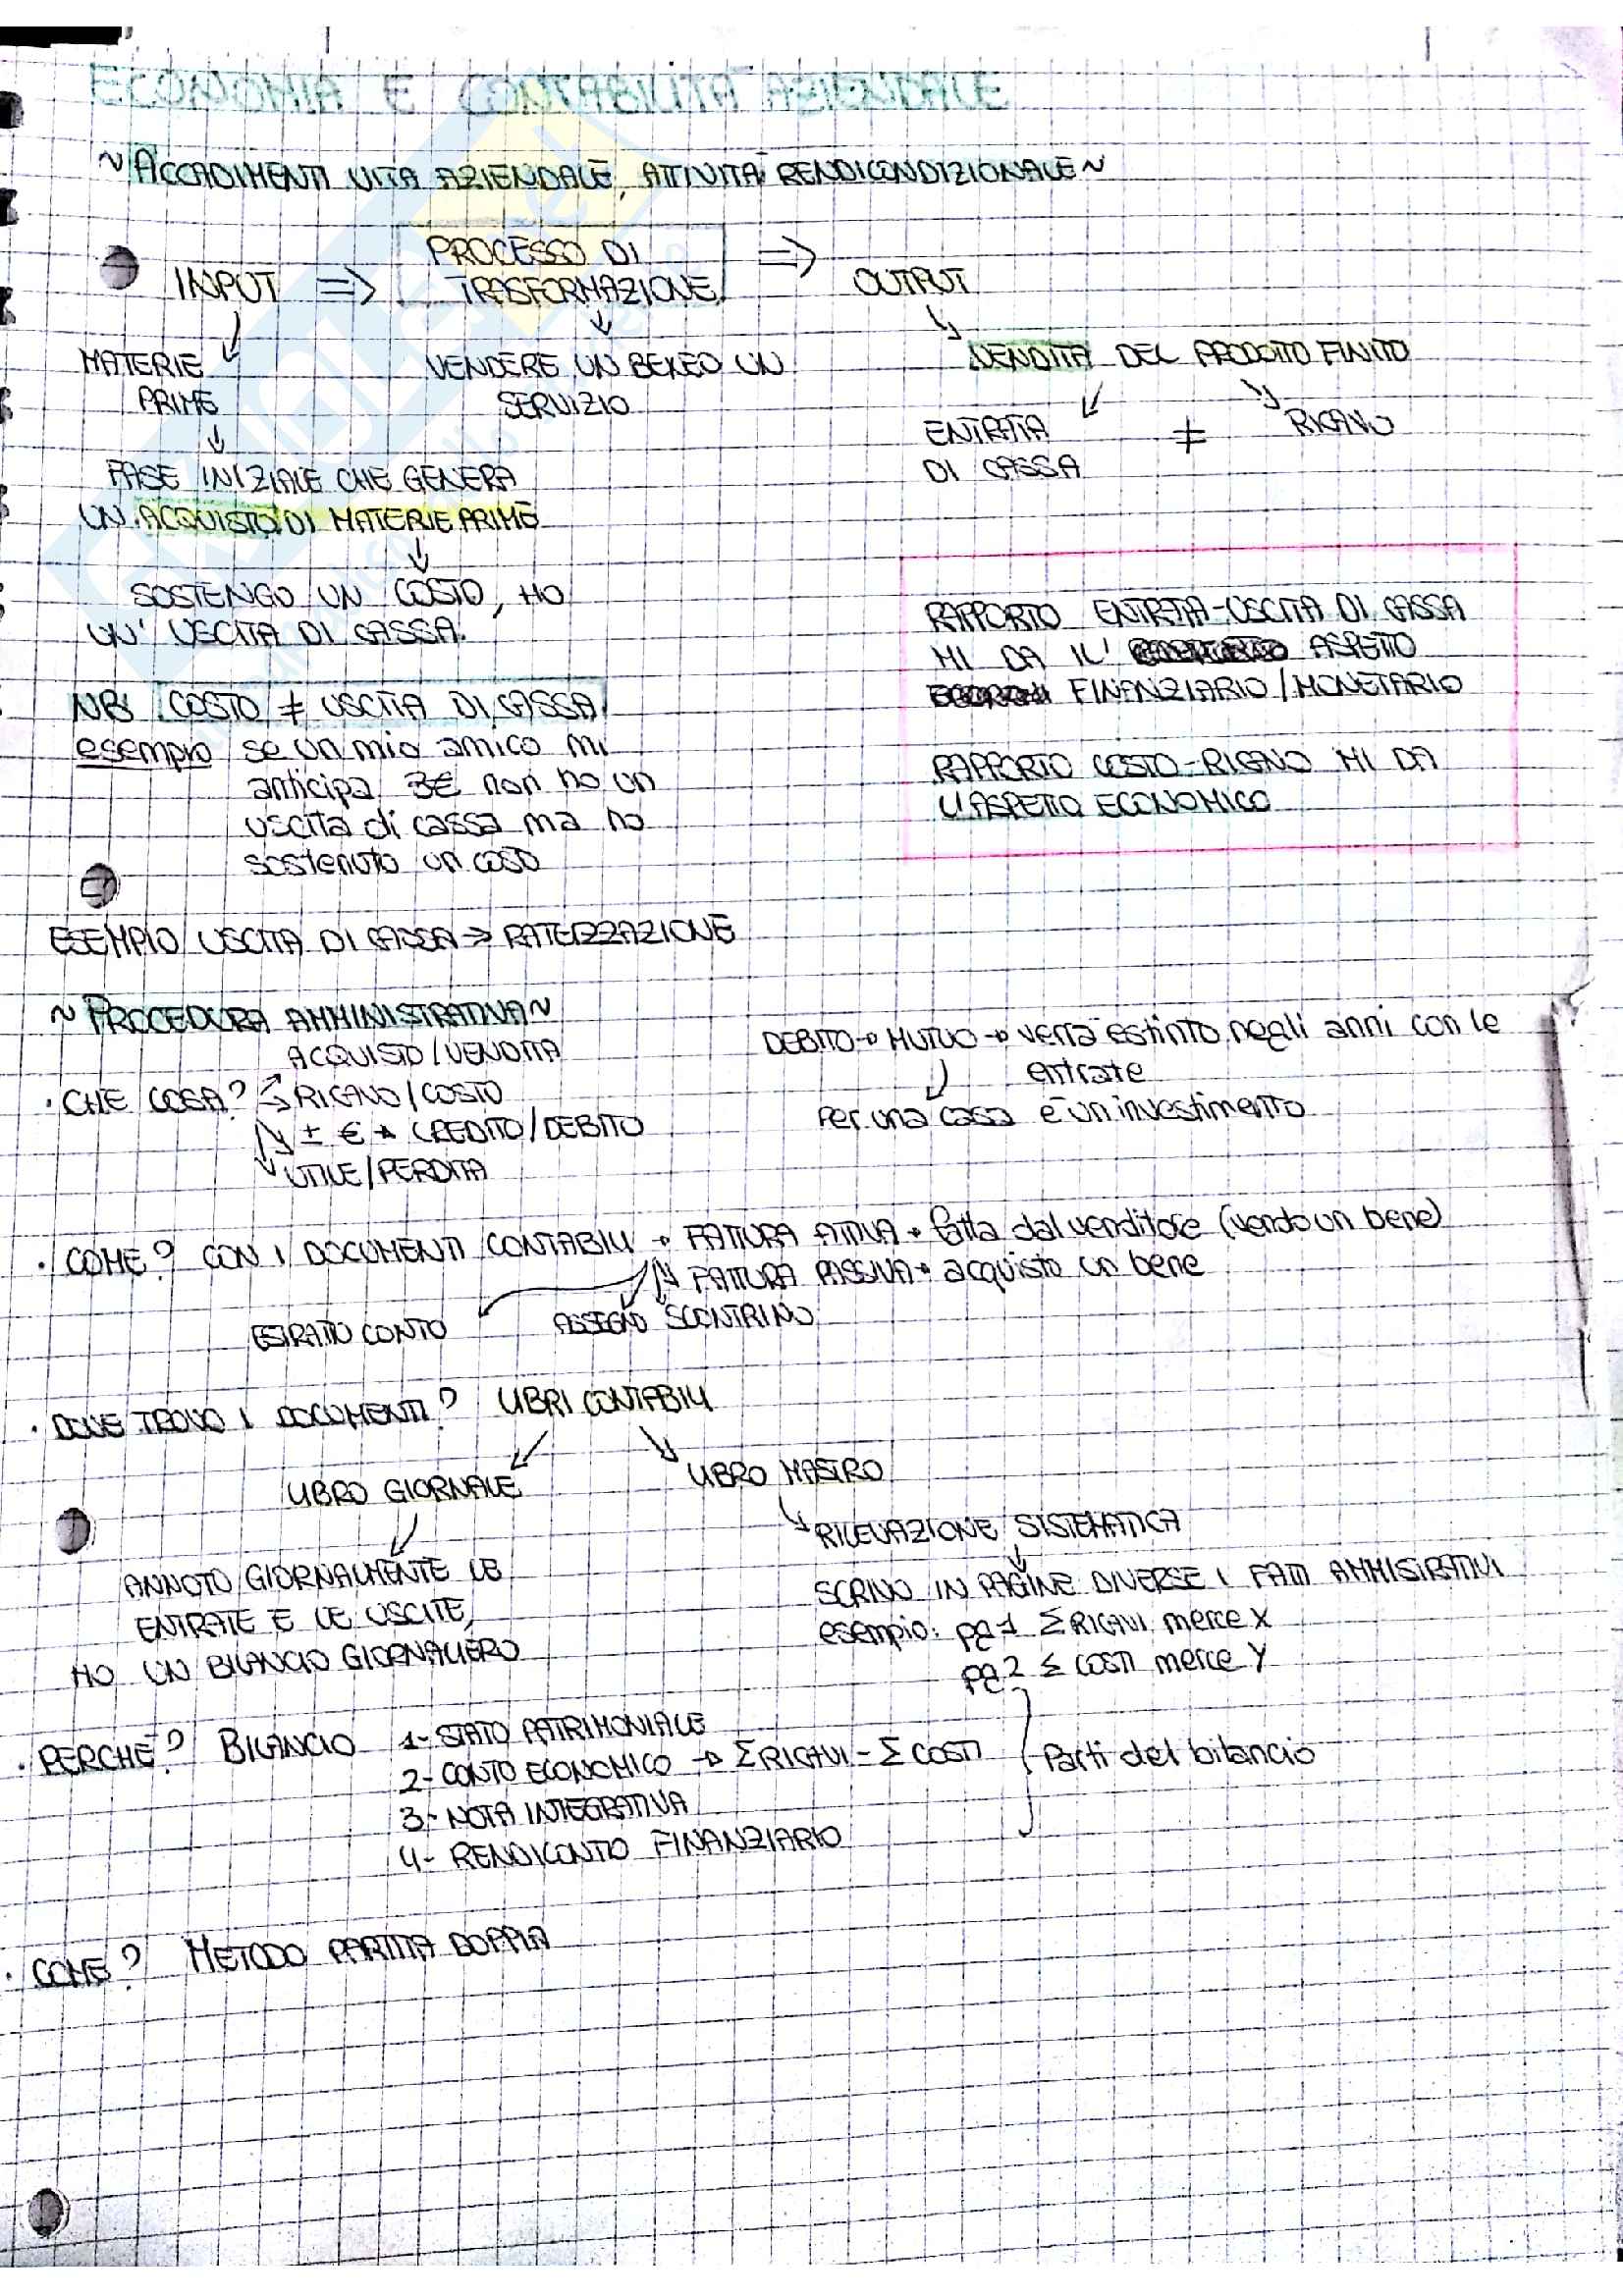 ECONOMIA E CONTABILITÀ AZIENDALE
~ ACCADIMENTI VITA AZIENDALE, ATTIVITÀ RENDICONDIZIONALE ~
INPUT => PROCESSO DI TRASFORMAZIONE => OUTPUT
MATERIE PRIME
VENDERE UN BENE O UN SERVIZIO
VENDITA DEL PRODOTTO FINITO
ENTRATA DI CASSA ≠ RICAVO
FASE INIZIALE CHE GENERA
UN ACQUISTO DI MATERIE PRIME
SOSTENGO UN COSTO, HO
UN' USCITA DI CASSA.
NB: COSTO ≠ USCITA DI CASSA
esempio se un mio amico mi
anticipa 3€ non ho un
uscita di cassa ma ho
sostenuto un costo
RAPPORTO ENTRATA-USCITA DI CASSA
MI DA IL' ASPETTO
FINANZIARIO/MONETARIO
RAPPORTO COSTO-RICAVO MI DA
L'ASPETTO ECONOMICO
ESEMPIO USCITA DI CASSA => RATEIZZAZIONE
~ PROCEDURA AMMINISTRATIVA ~
ACQUISTO/VENDITA
· CHE COSA? → RICAVO/COSTO
± € → CREDITO/DEBITO
UTILE/PERDITA
DEBITO → MUTUO → verrà estinto negli anni con le
entrate
Per una casa è un investimento
· COME? CON I DOCUMENTI CONTABILI → FATTURA ATTIVA → fatta dal venditore (vendo un bene)
FATTURA PASSIVA → acquisto un bene
ESTRATTO CONTO ASSEGNO SCONTRINO
· DOVE TROVO I DOCUMENTI? LIBRI CONTABILI
LIBRO GIORNALE
LIBRO MASTRO
ANNOTO GIORNALMENTE LE
ENTRATE E LE USCITE,
HO UN BILANCIO GIORNALIERO
RILEVAZIONE SISTEMATICA
SCRIVO IN PAGINE DIVERSE I FATTI AMMISTRATIVI
esempio: pg 1 Σ RICAVI merce X
pg 2 Σ COSTI merce Y
· PERCHÉ? BILANCIO 1- STATO PATRIMONIALE
2- CONTO ECONOMICO → Σ RICAVI - Σ COSTI
3- NOTA INTEGRATIVA
4- RENDICONTO FINANZIARIO
Parti del bilancio
· COME? METODO PARTITA DOPPIA